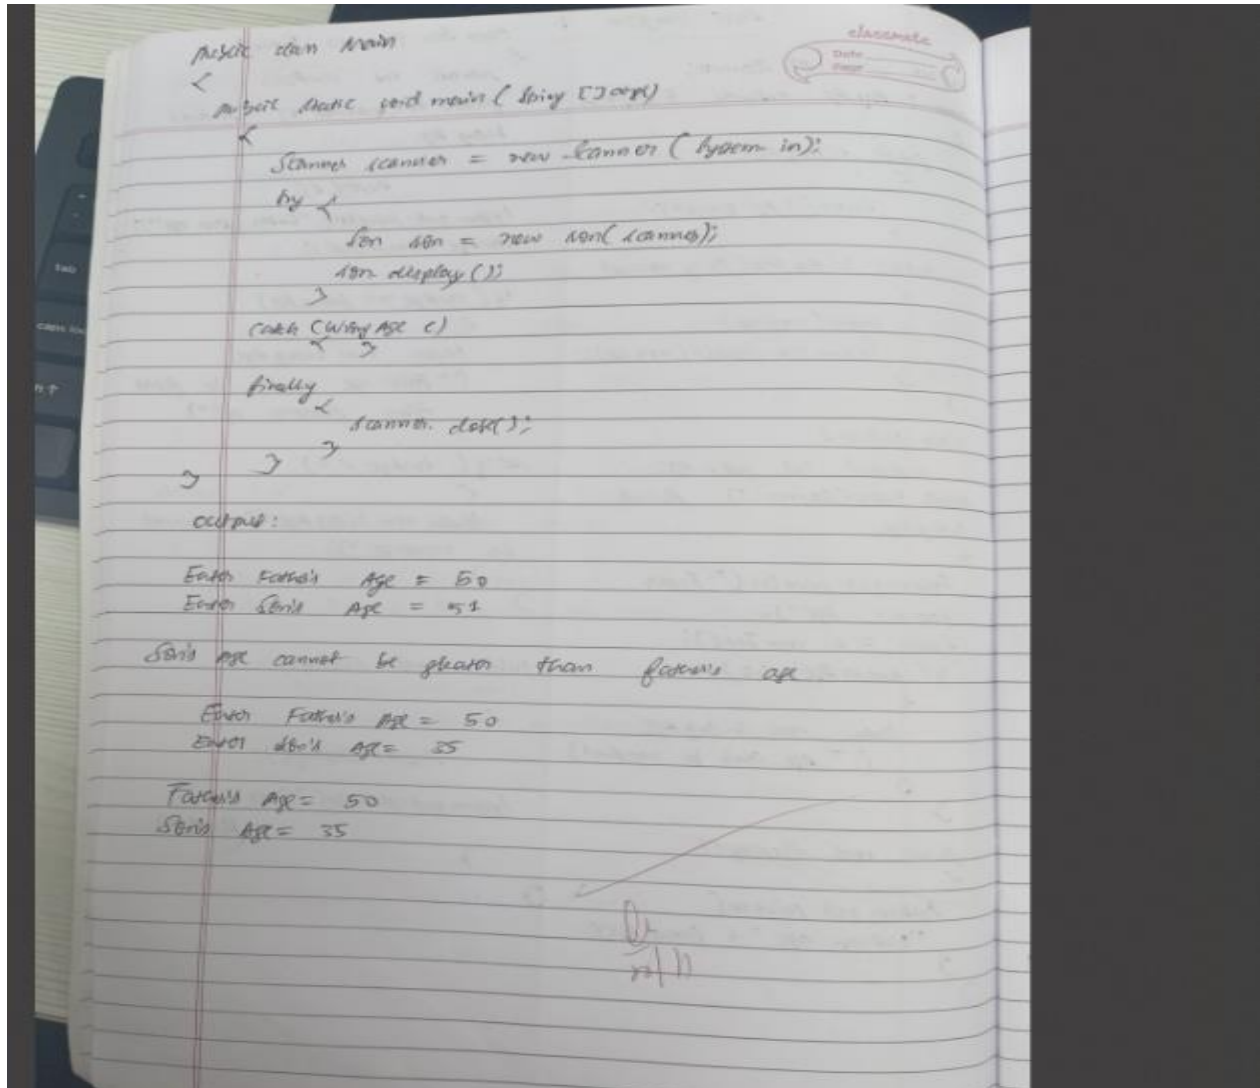 classmate
Date
Page
public class Main
{
public static void main (String [] args)
{
Scanner scanner = new Scanner (System.in);
try {
Son son = new Son(scanner);
son.display();
}
catch (WrongAge e)
{ }
finally
{
scanner.close();
}
}
}
output:
Enter Father's Age = 50
Enter Son's Age = 51
Son's Age cannot be greater than father's age
Enter Father's Age = 50
Enter Son's Age = 35
Father's Age = 50
Son's Age = 35